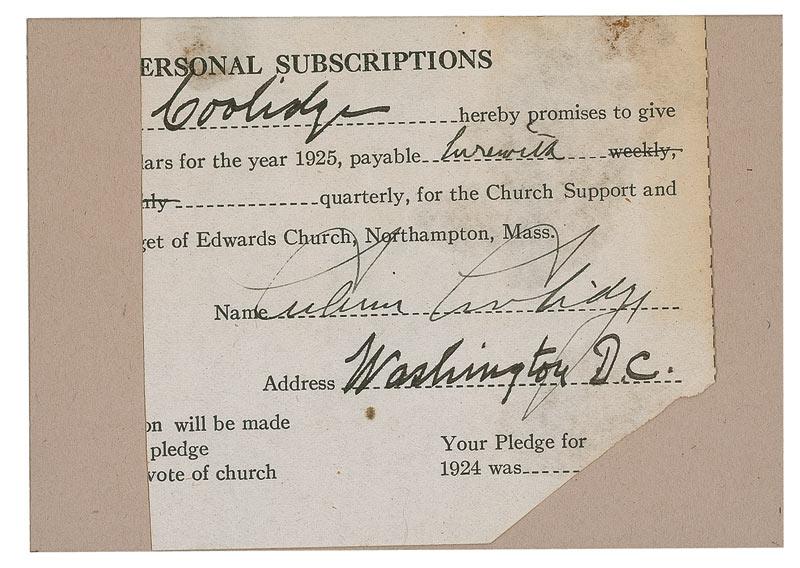 ERSONAL SUBSCRIPTIONS
Coolidge hereby promises to give
lars for the year 1925, payable herewith weekly,
hly quarterly, for the Church Support and
get of Edwards Church, Northampton, Mass.
Name Calvin Coolidge
Address Washington D.C.
on will be made
pledge
vote of church
Your Pledge for
1924 was